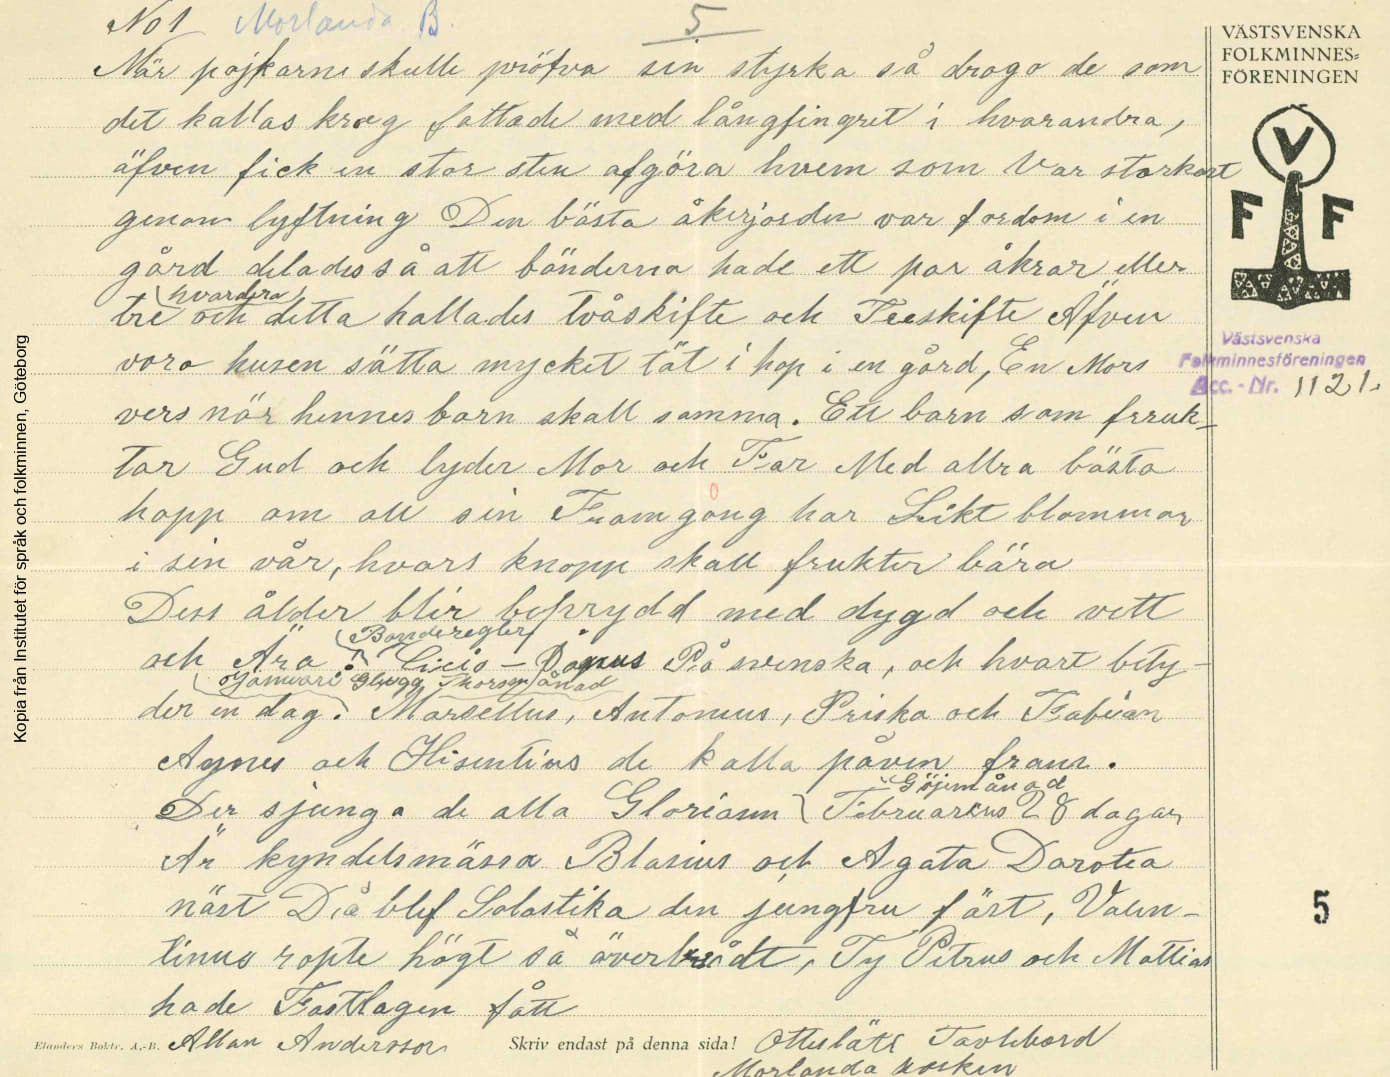 No 1 Morlanda B. 5
När pojkarne skulle pröfva sin styrka så drogo de som
det kallas krog fattade med långfingret i hvarandra,
äfven fick en stor sten afgöra hvem som Var starkast
genom lyftning Den bästa åkerjorden var fordom i en
gård delades så att bönderna hade ett par åkrar eller
(hvardera)
tre och detta kallades tvåskifte och Treskifte Äfven
voro husen sätta mycket tät i hop i en gård, En Mors
vers när hennes barn skall somna. Ett barn som fruk-
tar Gud och lyder Mor och Far Med allra bästa
hopp om all sin Framgong har Likt blommor
i sin vår, hvars knopp skall frukter bära
Dess ålder blir beprydd med dygd och vett
(Bonderegler)
och Ära! Cicio - Danus På svenska, och hvart bety-
(Januari Glugg Thorsmånad)
der en dag. Marsellus, Antonius, Priska och Fabian
Agnes och Hisentius de kalla påven fram.
Göjemånad
Der sjunga de alla Gloriam Februarius 28 dagar
Är kyndelsmässa Blasius och Agata Dorotea
näst Då blef Solastika den jungfru fäst, Valen-
tinus ropte högt så överbrådt, Ty Petrus och Mattias
hade Fastlagen fått
Allan Andersson
Elanders Boktr. A.-B.
Skriv endast på denna sida!
Otteslätt Tavlebord
Morlanda socken
VÄSTSVENSKA
FOLKMINNES=
FÖRENINGEN
V
F F
Västsvenska
Folkminnesföreningen
Acc.-Nr. 1121.
5
Kopia från Institutet för språk och folkminnen, Göteborg